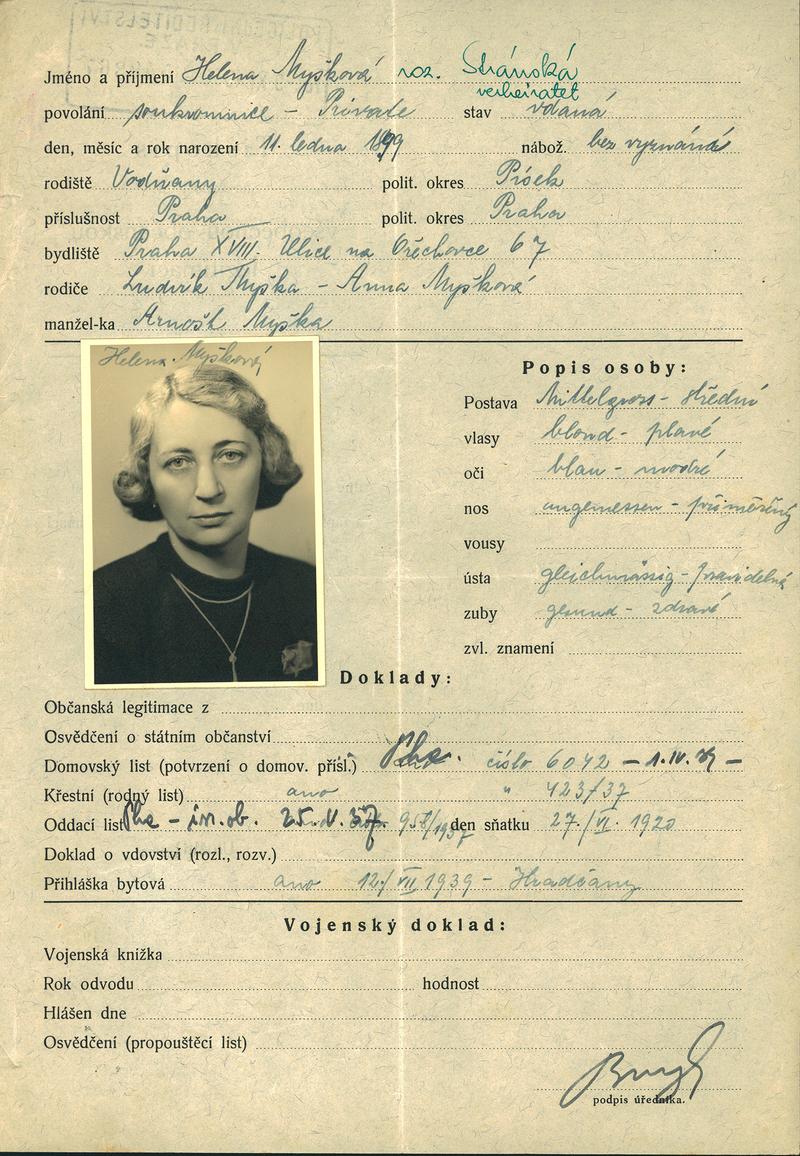 Jméno a příjmení Helena Myšková roz. Stránská
verheiratet
povolání soukromnice - Private stav vdaná
den, měsíc a rok narození 11. ledna 1899 nábož. bez vyznání
rodiště Vodňany polit. okres Písek
příslušnost Praha polit. okres Praha
bydliště Praha XVIII. Ulice na Ořechovce 67
rodiče Ludvík Myška - Anna Myšková
manžel-ka Arnošt Myška
Helena Myšková
Popis osoby:
Postava Mittelgross - střední
vlasy blond - plavé
oči blau - modré
nos angemessen - přiměřený
vousy
ústa gleichmässig - pravidelná
zuby gesund - zdravé
zvl. znamení
Doklady:
Občanská legitimace z
Osvědčení o státním občanství
Domovský list (potvrzení o domov. přísl.) Pha. číslo 6042 - 1.IV. -
Křestní (rodný list) ano " 423/37
Oddací list Pha - 25.V.37. 958/1937 den sňatku 27./VI. 1920
Doklad o vdovství (rozl., rozv.)
Přihláška bytová ano 12/VII 1939 - Hradčany
Vojenský doklad:
Vojenská knížka
Rok odvodu hodnost
Hlášen dne
Osvědčení (propouštěcí list)
podpis úředníka.